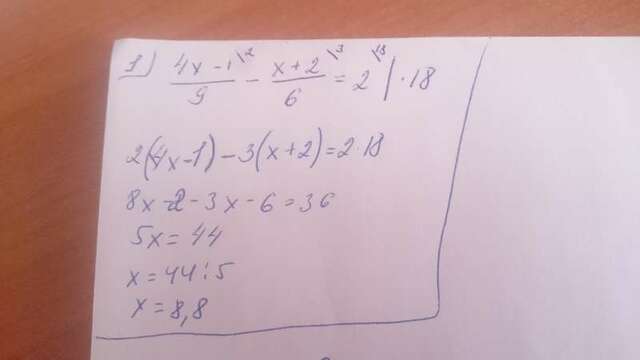 1) (4x-1)/9 \2 - (x+2)/6 \3 = 2 \18 | ·18
2(4x-1)-3(x+2)=2·18
8x-2-3x-6=36
5x=44
x=44:5
x=8,8